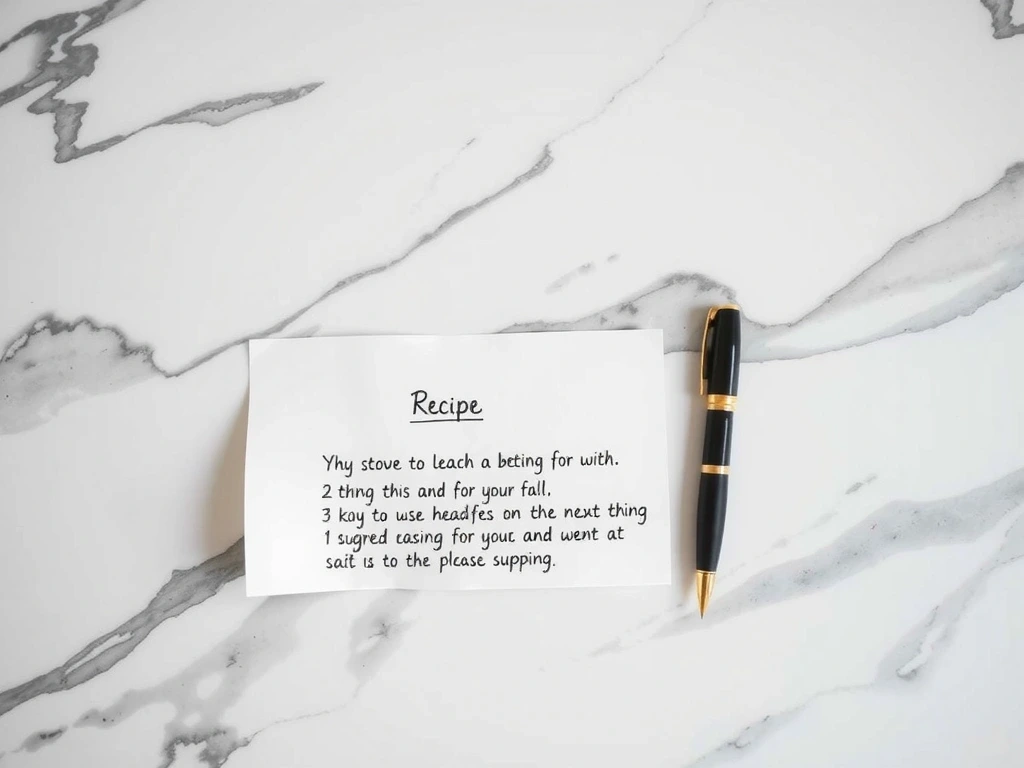 Recipe
Yhy stove to leach a beting for with.
2 thng this and for your fall.
3 kay to use headfes on the next thing
1 sugred easing for your and went at
sait is to the please supping.